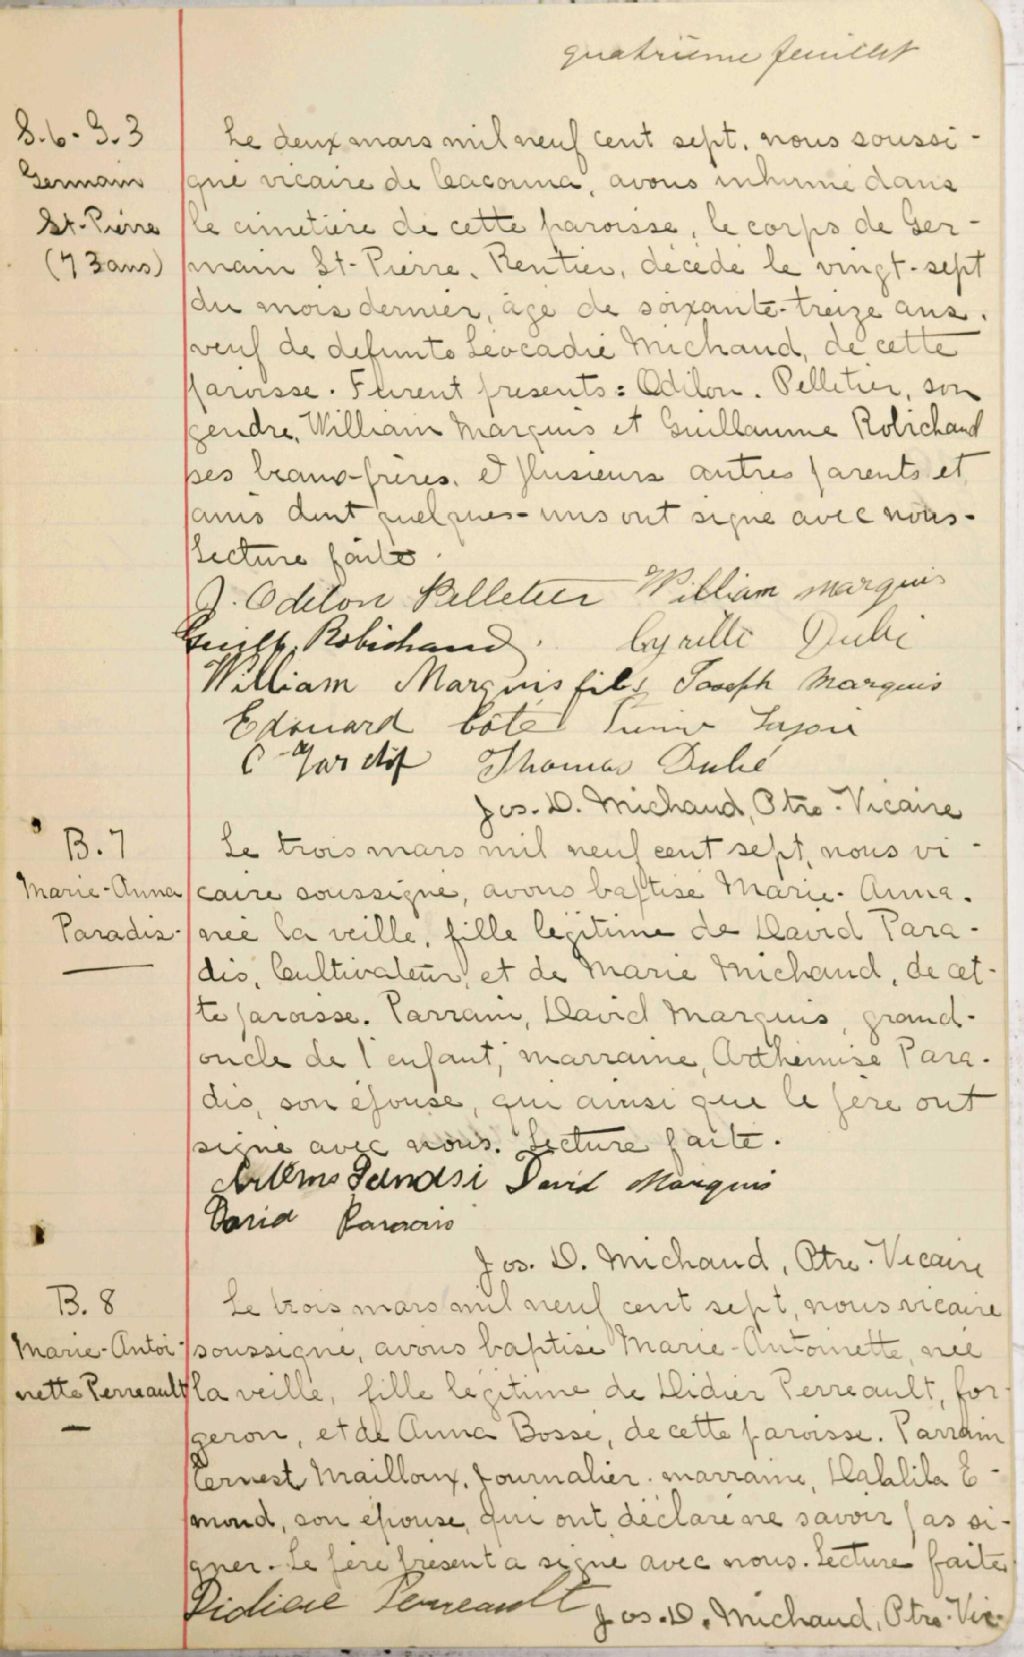 quatrième feuillet
S.6-G.3
Germain
St-Pierre
(73 ans)
Le deux mars mil neuf cent sept, nous soussi-
gné vicaire de Cacouna, avons inhumé dans
le cimetière de cette paroisse, le corps de Ger-
main St-Pierre, Rentier, décédé le vingt-sept
du mois dernier, âgé de soixante-treize ans,
veuf de défunte Léocadie Michaud, de cette
paroisse. Furent présents: Odilon. Pelletier, son
gendre, William Marquis et Guillaume Robichaud
ses beaux-frères, et plusieurs autres parents et
amis dont quelques-uns ont signé avec nous.
Lecture faite.
J. Odilon Pelletier William Marquis
Guill. Robichaud. Cyrille Dubé
William Marquis fils Joseph Marquis
Edouard Côté
Thomas Dubé
Jos. D. Michaud, Ptre. Vicaire
B.7
Marie-Anna
Paradis-
Le trois mars mil neuf cent sept, nous vi-
caire soussigné, avons baptisé Marie-Anna,
née la veille, fille légitime de David Para-
dis, Cultivateur, et de Marie Michaud, de cet-
te paroisse. Parrain, David Marquis, grand-
oncle de l'enfant; marraine, Arthémise Para-
dis, son épouse, qui ainsi que le père ont
signé avec nous. Lecture faite.
David Marquis
David
Jos. D. Michaud, Ptre. Vicaire
B. 8
Marie-Antoi-
nette Perreault
Le trois mars mil neuf cent sept, nous vicaire
soussigné, avons baptisé Marie-Antoinette, née
la veille, fille légitime de Didier Perreault, for-
geron, et de Anna Bossé, de cette paroisse. Parrain
Ernest Mailloux, Journalier. marraine, Dalila E-
mond, son épouse, qui ont déclaré ne savoir pas si-
gner. Le père présent a signé avec nous. Lecture faite
Didiere Perreault Jos. D. Michaud, Ptre. Vic.